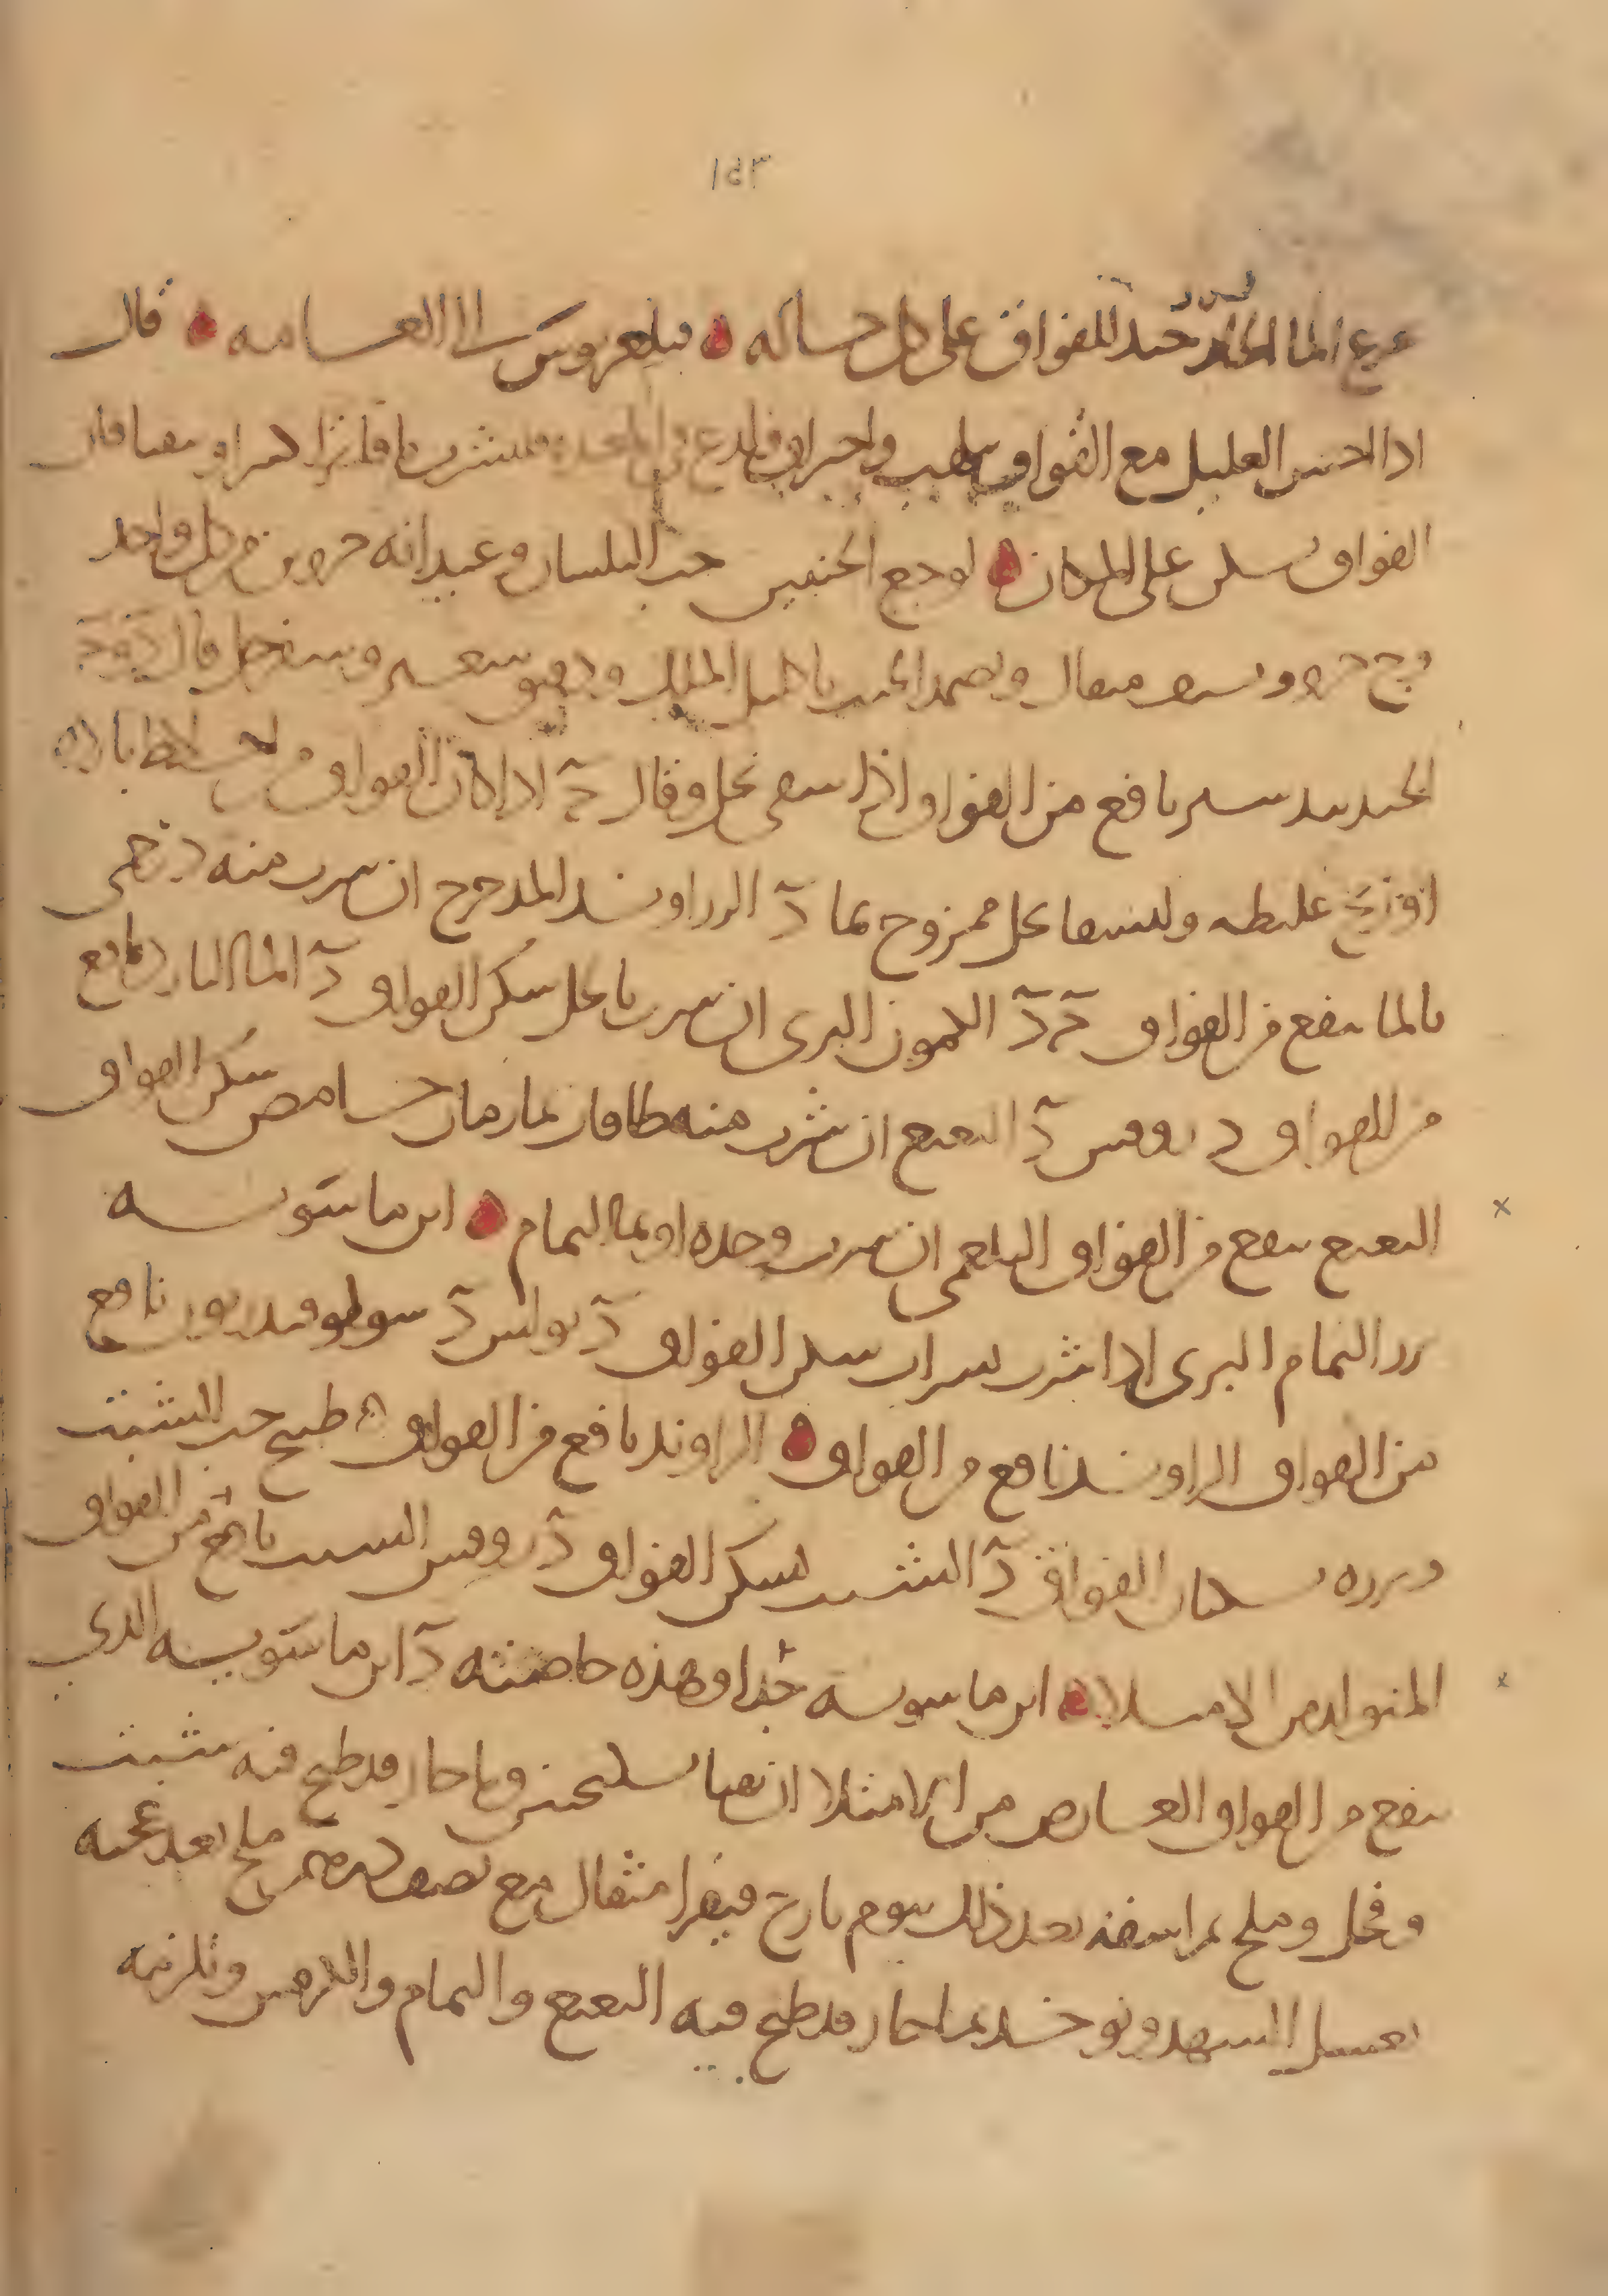 ١٤٣
الما الحار جيد للفواق على كل حاله ۞ فيلغريوس الى العامه ۞ قال
اذا احس العليل مع الفواق بلهيب واحراق ولدع في المعده فليشرب ما فاترا كثيرا ويتقيا فان
الفواق يسكن على المكان ۞ لوجع الجنبين حب البلسان وعيدانه جزوين من كل واحد
وج جزو ويسقى مثقال ويضمد الجنب باكليل الملك ودقيق شعير وسفرجل قال
الجندبيدستر نافع من الفواق اذا سقي بخل وقال ج اذا كان الفواق من اخلاط بارده
او ريح غليظه وليسقا بخل ممزوج بما د الزراوند المدحرج ان شرب منه درخمى
بالما ينفع من الفواق ج د الكمون البري ان شرب بالخل سكن الفواق د الما البارد نافع
من الفواق د روفس د النعنع ان شرب منه طاقات بما رمان حامض سكن الفواق
النعنع ينفع من الفواق البلغمي ان شرب وحده او بما النمام ۞ ابن ماسويه
بزر النمام البري اذا شرب بشراب سكن الفواق د بولس د سولوفندريون نافع
من الفواق الراوند نافع من الفواق ۞ الراوند نافع من الفواق ه طبيخ حب الشبث
وبزره يسكنان الفواق د الشبث يسكن الفواق د روفس الشبث نافع من الفواق
المتولد من الامتلا ۞ ابن ماسويه جدا وهذه خاصيته د ابن ماسويه الذي
ينفع من الفواق العارض من الامتلا ان يقيا بسكنجبين وما حار قد طبخ فيه شبث
وفجل وملح ثم اسقه بعد ذلك بيوم يارج فيقرا مثقال مع نصف درهم ملح بعد عجنه
بعسل الشهد ويوخذ بما حار قد طبخ فيه النعنع والنمام والكرفس وتلزمه